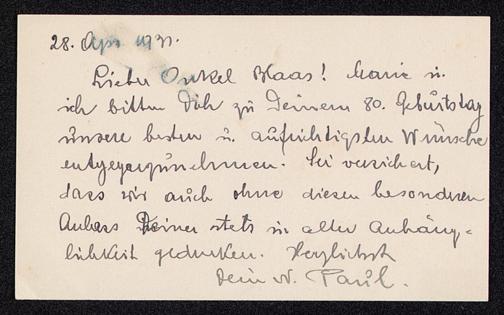 28. Apr 1931.
Lieber Onkel Blaas! Marie u.
ich bitten Dich zu Deinem 80. Geburtstag
unsere besten u. aufrichtigsten Wünsche
entgegenzunehmen. Sei versichert,
dass wir auch ohne diesen besonderen
Anlass Deiner stets in alter Anhäng-
lichkeit gedenken. Herzlichst
Dein N. Paul.